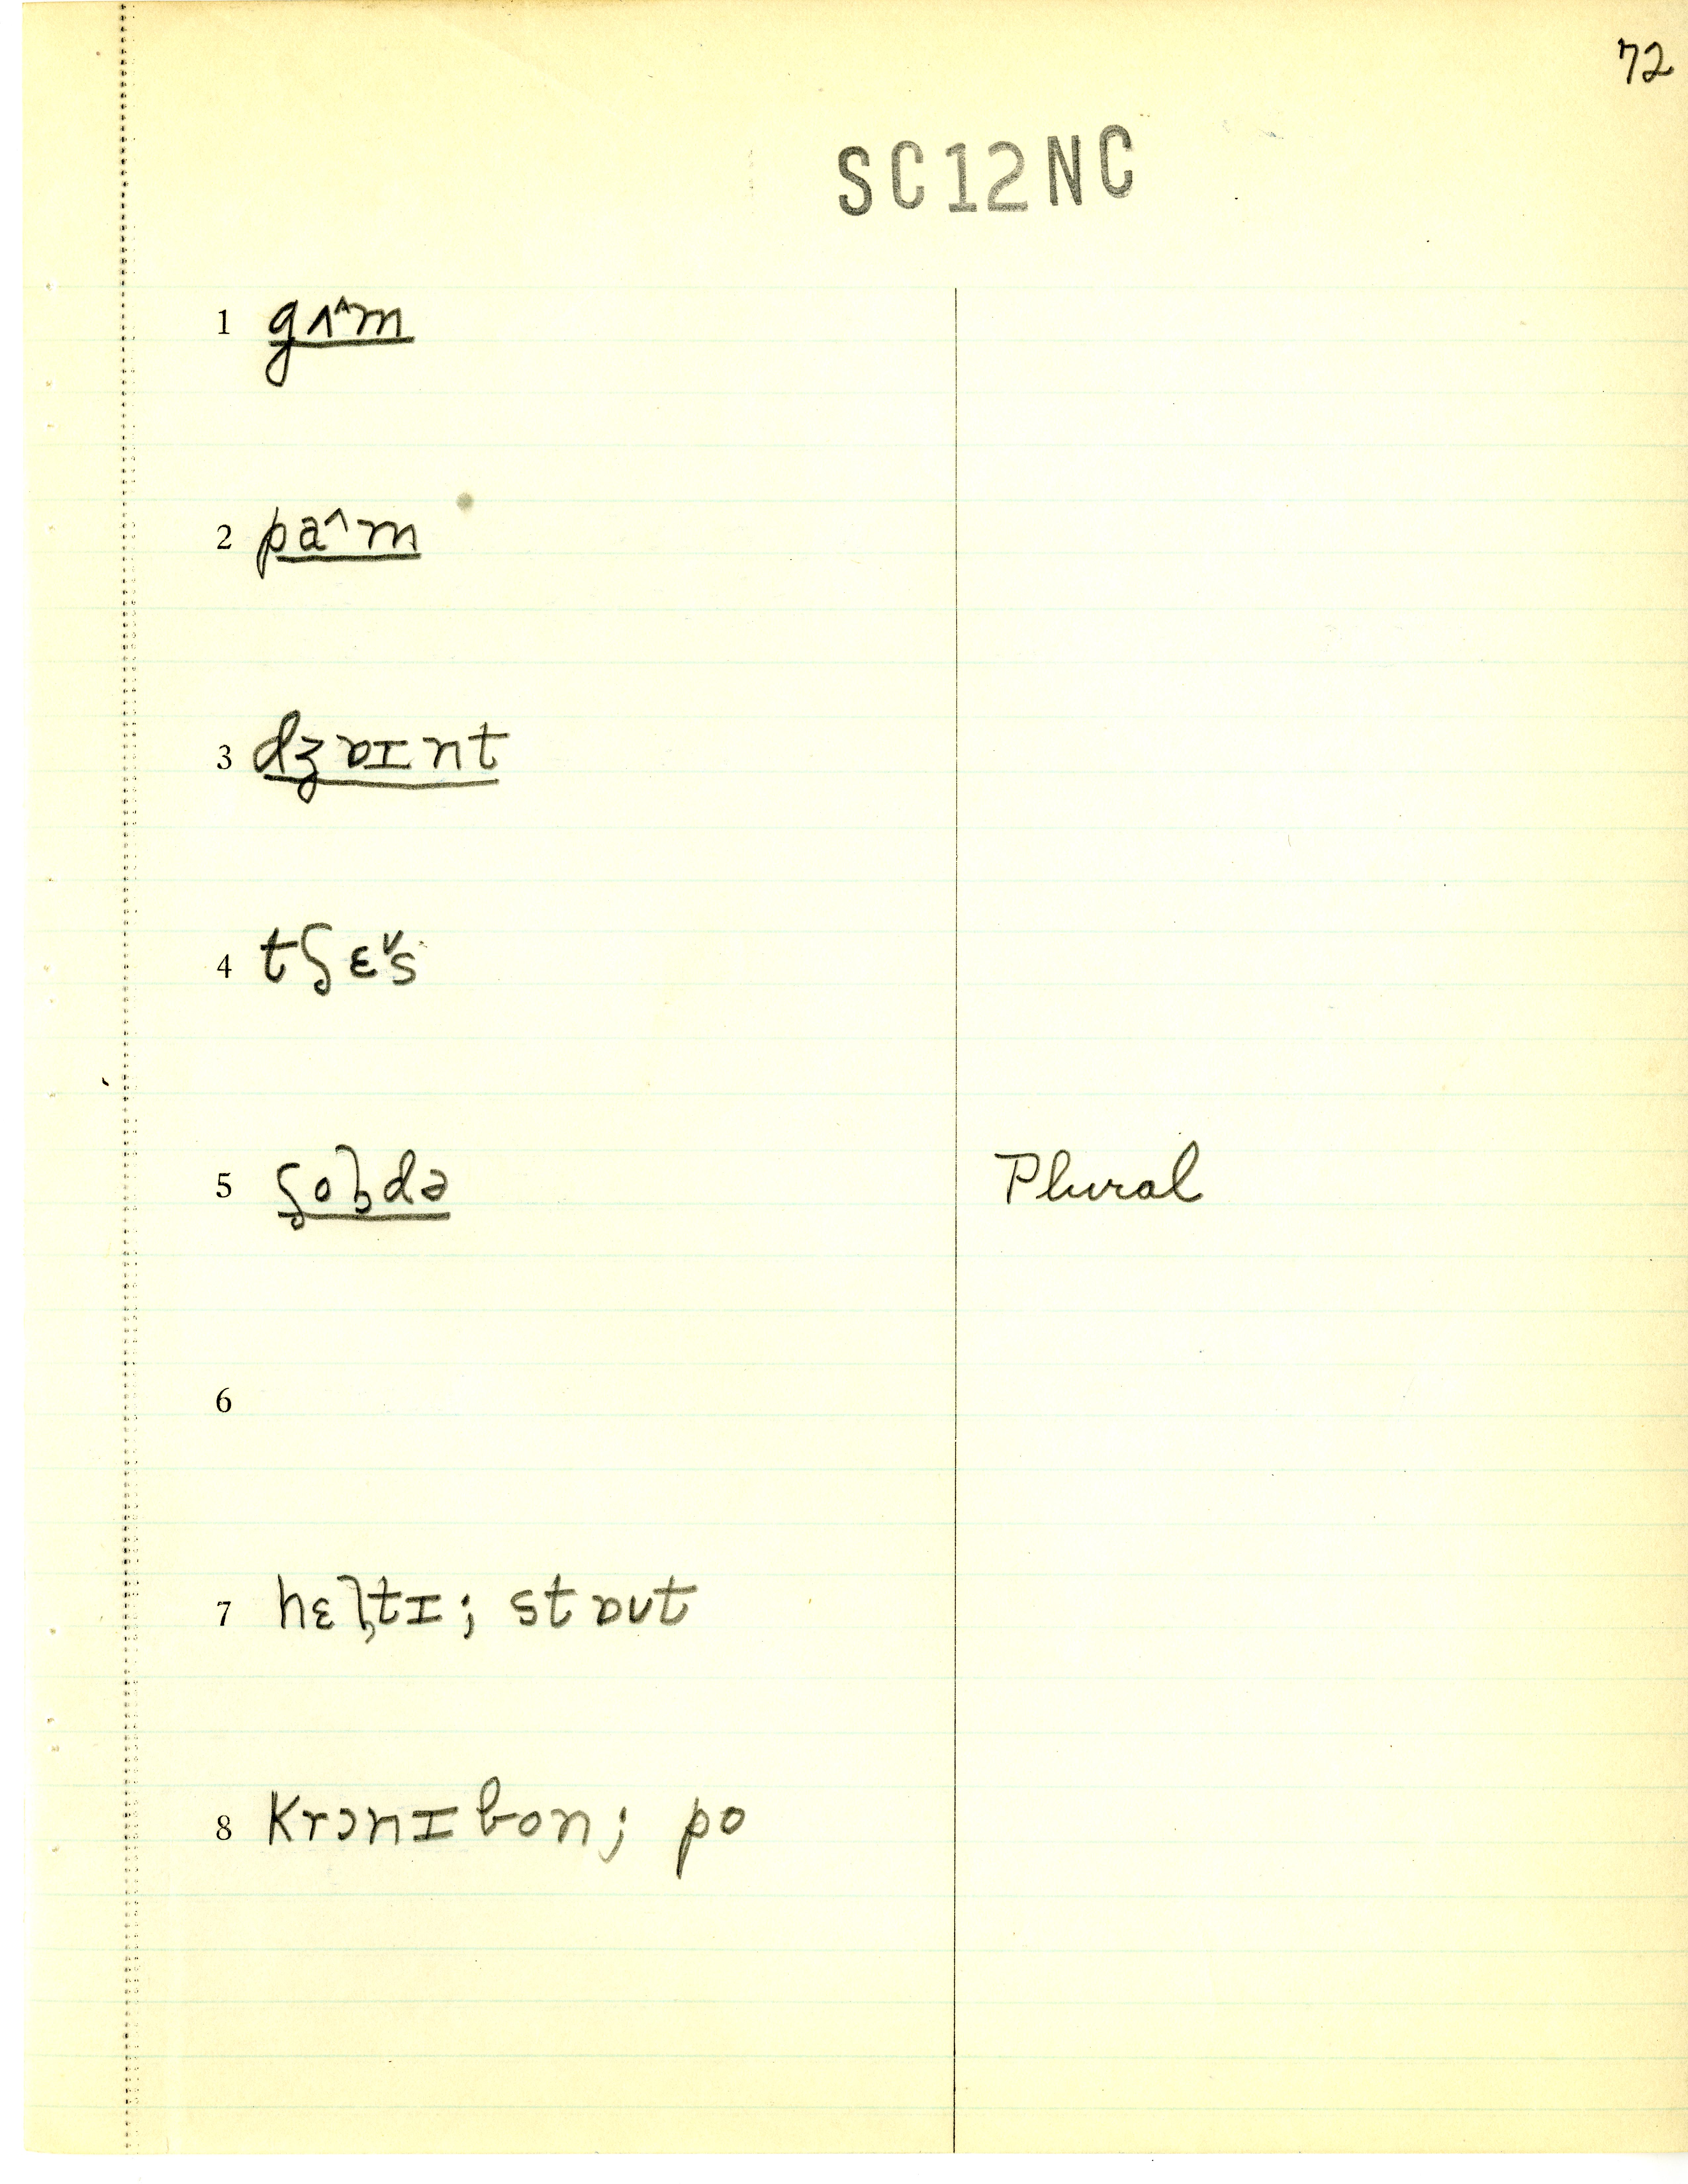 72
SC12NC
1 gʌ^m
2 pa^m
3 dʒɒɪnt
4 tʃɛ˅s
5 ʃoɫdə Plural
6
7 hɛɫtɪ; stɒʊt
8 krɔnɪbon; po